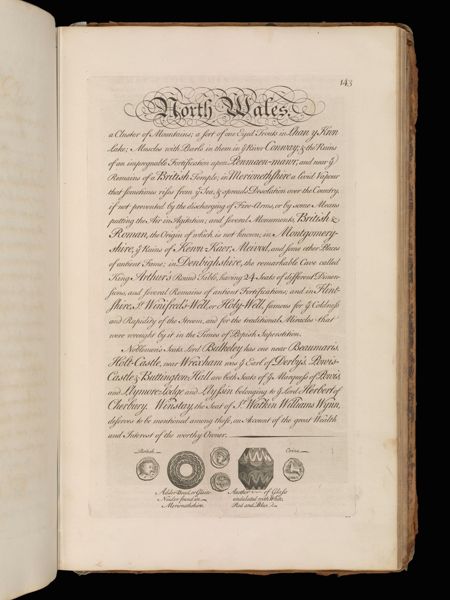 143
North Wales.
a Cluster of Mountains; a sort of one Eyed Trouts in Lhan y Kwn
Lake; Muscles with Pearls in them in ye River Conway; & the Ruins
of an impregnable Fortification upon Penmaen-mawr; and near ye
Remains of a British Temple; in Merionethshire a Livid Vapour
that sometimes rises from ye Sea, & spreads Desolation over the Country,
if not prevented by the discharging of Fire-Arms, or by some Means
putting the Air in Agitation; and several Monuments, British &
Roman, the Origin of which is not known; in Montgomery-
shire, ye Ruins of Kevn-Kaer, Meivod, and some other Places
of antient Fame; in Denbighshire, the remarkable Cave called
King Arthur's Round Table, having 24 Seats of different Dimen-
sions, and several Remains of antient Fortifications; and in Flint-
shire St. Winifred's-Well, or Holy-Well, famous for ye Coldness
and Rapidity of the Stream, and for the traditional Miracles that
were wrought by it in the Times of Popish Superstition.
Noblemen's Seats. Lord Bulkeley has one near Beaumaris.
Holt-Castle, near Wrexham was ye Earl of Derby's. Powis-
Castle & Buttington Hall are both Seats of ye Marquess of Powis
and Llymore-Lodge and Llyssin belonging to ye Lord Herbert of
Cherbury. Winstay, the Seat of Sr. Watkin Williams Wynn,
deserves to be mentioned among these, on Account of the great Wealth
and Interest of the worthy Owner.
British
Coins
Adder Bead, or Glain
Neidr found in
Merionethshire.
Another of Glass
undulated with White,
Red and Blue.